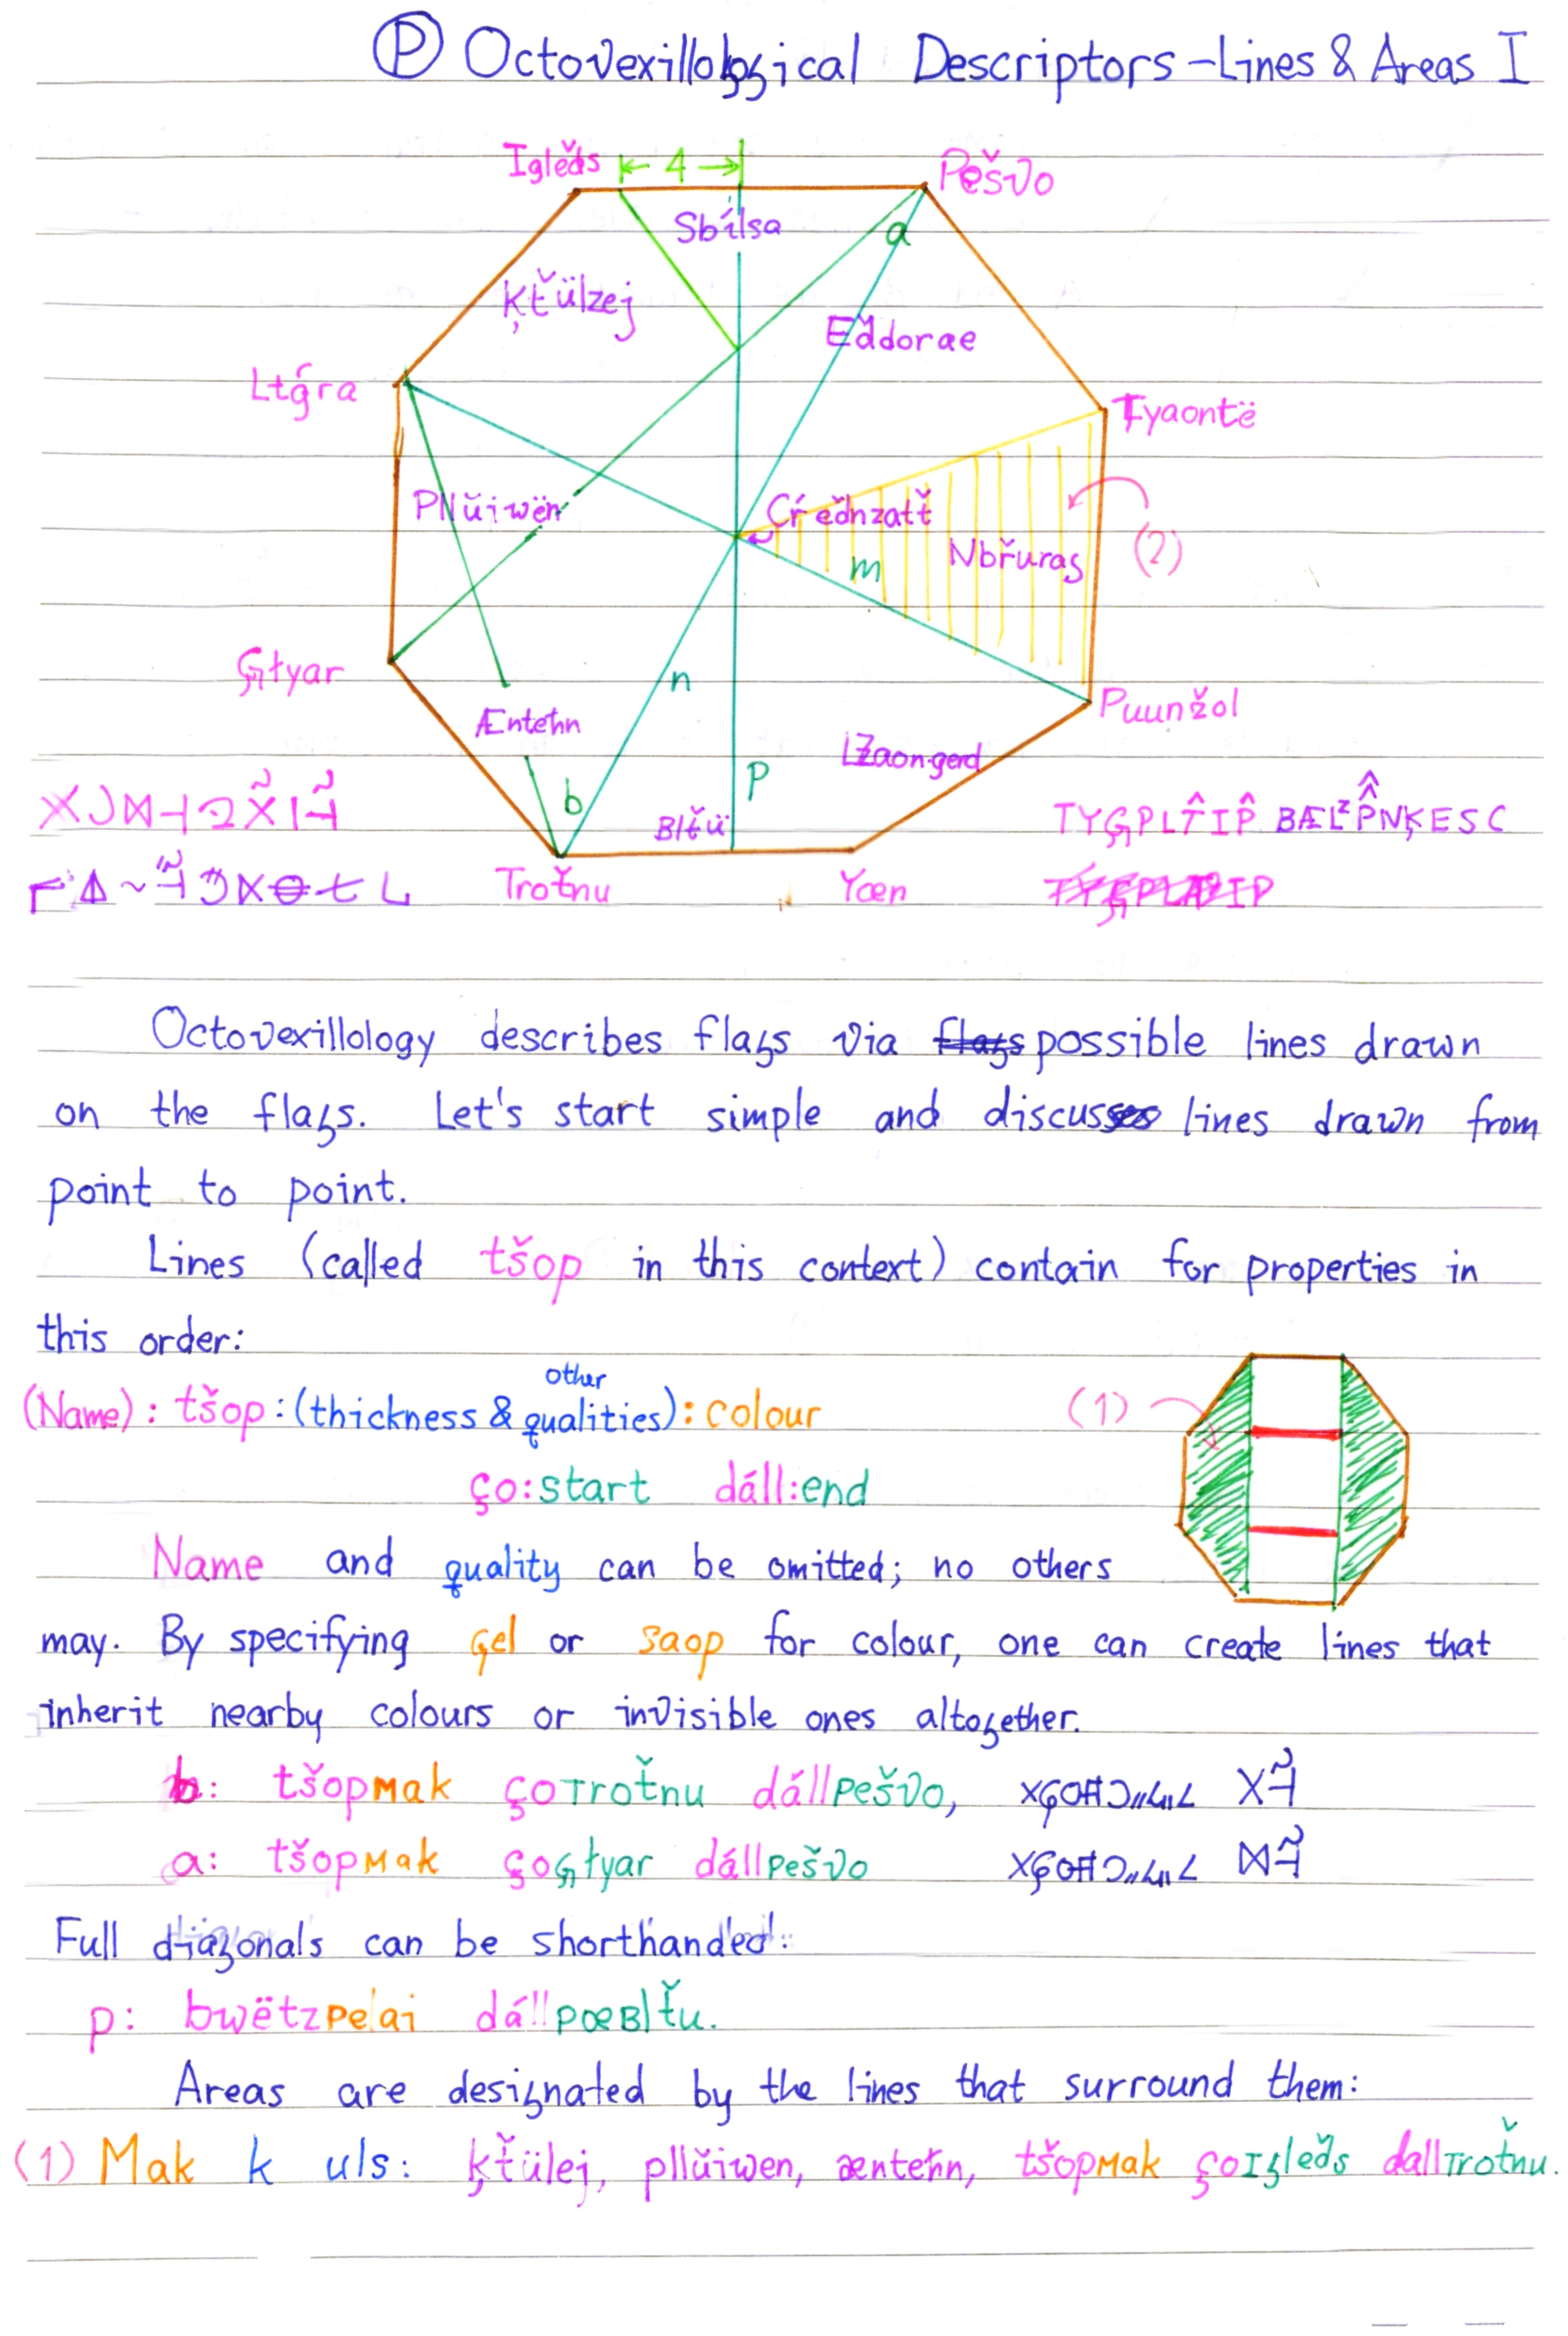 Ⓟ Octovexillological Descriptors - Lines & Areas I
Iglěds ← 4 → Pěšvo
Sbílsa a
Ķťülzej
Eǎdorae
Ltǵra
Tyaontë
Pllǔiwën
Cŕeǒhnzatť
Nbřuraş (2)
m
Ģtyar
n
Puunžol
Æntehn
Lžaongerd
p
b
TYĢPLT̂IP̂
Blťü
Troťnu Yœn
Octovexillology describes flags via flags possible lines drawn
on the flags. Let's start simple and discuss lines drawn from
point to point.
Lines (called tšop in this context) contain for properties in
this order:
(Name): tšop: (thickness & other qualities): colour
(1)
ço:start dáll:end
Name and quality can be omitted; no others
may. By specifying gel or saop for colour, one can create lines that
inherit nearby colours or invisible ones altogether.
b: tšopmak çoTroťnu dállpešvo,
a: tšopmak çoģtyar dállpešvo
Full diagonals can be shorthanded:
p: bwëtzpelai dállpœBlťu.
Areas are designated by the lines that surround them:
(1) Mak k uls: ķťülej, pllǔiwen, æntehn, tšopmak çoIglěds dallTroťnu.